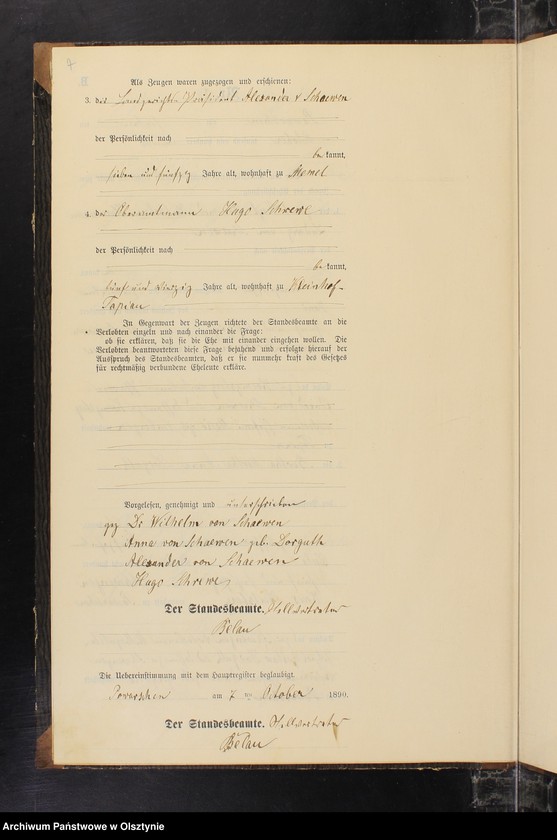 Als Zeugen waren zugezogen und erschienen:
3. der Landgerichts Präsident Alexander v Schaewen
der Persönlichkeit nach
be kannt,
sieben und fünfzig Jahre alt, wohnhaft zu Memel
4. der Oberamtmann Hugo Schrewe
der Persönlichkeit nach
be kannt,
fünf und Jahre alt, wohnhaft zu Kleinhof-
Tapiau
In Gegenwart der Zeugen richtete der Standesbeamte an die
Verlobten einzeln und nach einander die Frage:
ob sie erklären, daß sie die Ehe mit einander eingehen wollen. Die
Verlobten beantworteten diese Frage bejahend und erfolgte hierauf der
Ausspruch des Standesbeamten, daß er sie nunmehr kraft des Gesetzes
für rechtmäßig verbundene Eheleute erkläre.
Vorgelesen, genehmigt und unterschrieben
gez Dr Wilhelm von Schaewen
Anna von Schaewen geb. Dorguth
Alexander von Schaewen
Hugo Schrewe
Der Standesbeamte. Stellvertreter
Belau
Die Uebereinstimmung mit dem Hauptregister beglaubigt.
am 7 ten October 1890.
Der Standesbeamte. Stellvertreter
Belau
Archiwum Państwowe w Olsztynie